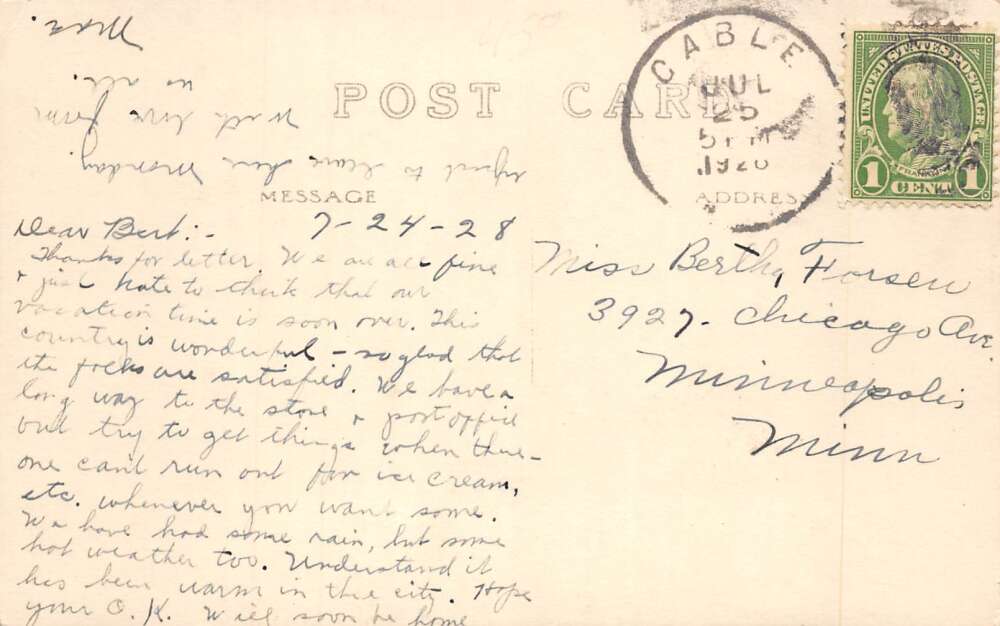 POST CARD
CABLE
JUL
25
5 PM
1928
UNITED STATES POSTAGE
FRANKLIN
1 CENT 1
MESSAGE
ADDRESS
Dear Bert:- 7-24-28
Thanks for letter. We are all fine
+ just hate to think that our
vacation time is soon over. This
country is wonderful - so glad that
the folks are satisfied. We have a
long way to the store + post office
but try to get things when there -
one can't run out for ice cream,
etc. whenever you want some.
We have had some rain, but some
hot weather too. Understand it
has been warm in the city. Hope
your O.K. Will soon be home
expect to leave here Monday.
With love from
us all.
Miss Bertha Forsen
3927 - Chicago Ave.
Minneapolis
Minn